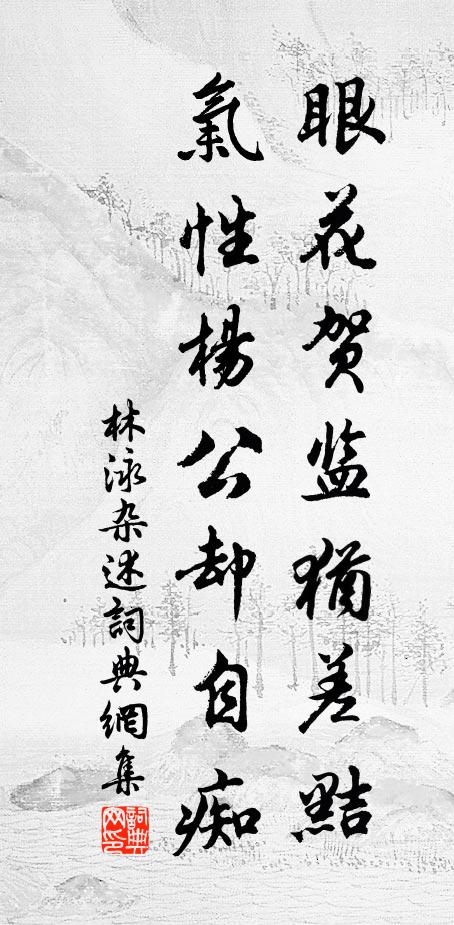 眼花贺监猶差黠
氣性楊公却自痴
林泳杂述詞典網集
詞典网印